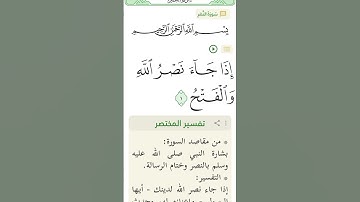 سورة النصر
بِسْمِ اللَّهِ الرَّحْمَٰنِ الرَّحِيمِ
إِذَا جَآءَ نَصْرُ اللَّهِ
وَالْفَتْحُ ١
تفسير المختصر
من مقاصد السورة:
بشارة النبي صلى الله عليه
وسلم بالنصر وختام الرسالة.
التفسير:
إذا جاء نصر الله لدينك - أيها